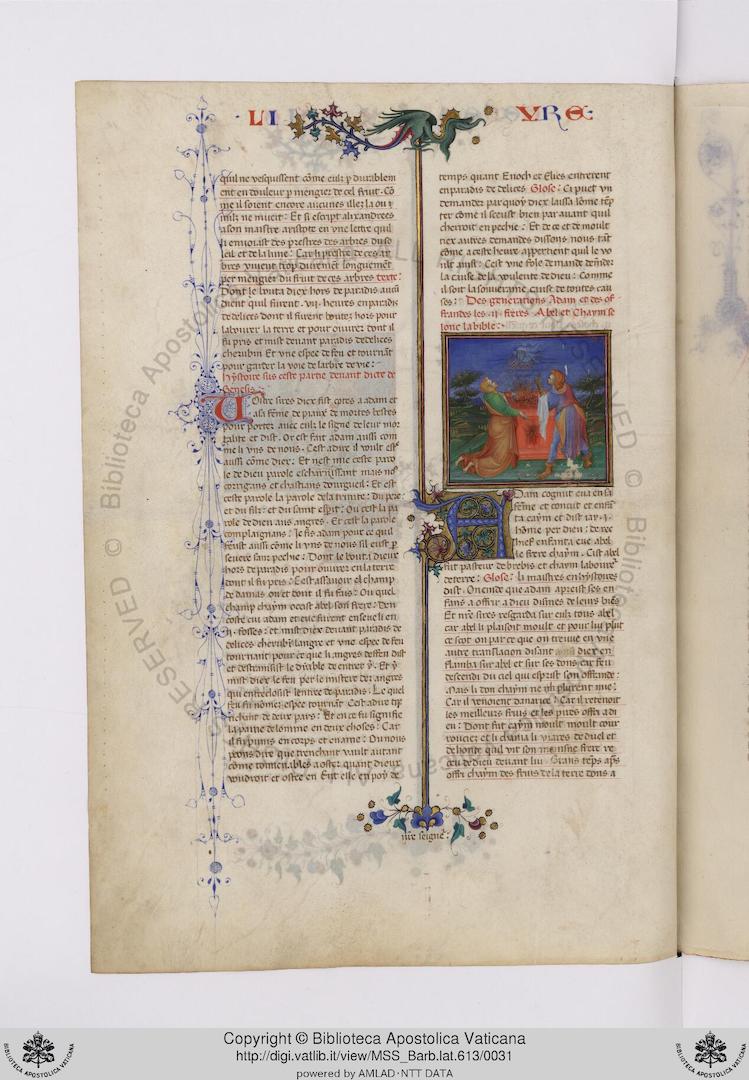 LI
VRE
qu il ne vesquissent come eulx p durablem
ent en douleur p mengier de cel fruit. Co
me il soient encore aucunes illes la ou
nulz ne muert: Et si escript alixandre es
a son maistre aristote en vne lettre quil
li enuoiast des prestres des arbres du so
leil et de la lune: Car li prestre de ces ar
bres viuent trop durement longuement
per mengier du fruit de ces arbres. texte:
Dont le bouta diex hors de paradis
dient quil furent .vij. heures en paradis
de delices dont il furent boute; hors pour
labourer la terre et pour ouurer dont il
fu pris et mist deuant paradis de delices
cherubin Et vne espee de feu et tournant
pour garder la voie de larbre de vie:
hystoire sus ceste partie deuant dicte de
Genesis:
Nostre sires diex fist cotes a adam et
a sa feme de piaux de mortes bestes
pour porter auec eulx le signe de leur mor
talite et dist. Or est fait adam aussi com
me li vns de nous. Cest a dire il voult est
aussi come diex: Et nest mie ceste paro
le de dieu parole
corrigans et chastians dorgueil: Et est
ceste parole la parole de la trinite: du pere
et du filz: et du saint espit: Ou cest la pa
role de dieu aus angres. Et cest la parole
complaignans: Je fis adam pour ce quil
feust aussi come li vns de nous sil eust p
seuere sans pechie: Dont le bouta diex
hors de paradis pour ouurer en la terre
dont il fu pris: Cest assauoir el champ
de damas ou et dont il fu fais: Ou quel
champ chaym occist abel son frere: Den
coste cui adam et eue furent enseueli en
.ij. fosses: et mist diex deuant paradis de
delices cherubin langre et vne espee de feu
tournant pour ce que li angres deffendist
et destraisist le dyable de entrer y. Et y
mist diex le feu per le mistere des angres
qui entreclosist lentree de paradis: Le quel
feu fu nomez espee tournant Cest a dire
trichant de deux pars: Et en ce fu signifie
la paine de lomme en deux choses: Car
il fu punis en corps et en ame: Ou nous
poons dire que trenchant vault autant
come tornenables a oster. quant dieux
voudroit et ostee en fut elle en poy de
temps quant Enoch et Elies entrerent
en paradis de delices Glose: Ci puet vn
demander par quoy diex laissa lome temp
ter come il sceust bien par auant quil
cherroit en pechie: Et de ce et de moult
dez autres demandes dissons nous tant
come a ceste heure appertient quil le vo
ult aussi: Cest vne fole demande demander
la cause de la voulente de dieu: Comme
il soit la souueraine cause de toutes cau
ses: Des generations Adam et des of
frandes les .ij. freres Abel et Chaym se
lonc la bible:
Adam cognut eua en sa
feme et conceut et enfan
ta caym et dist iay .i.
home per dieu: de re
chief enfanta eue abel
le frere chaym. Cist abel
fut pasteur de brebis et chaym laboure
de terre: Glose: li maistres en hystoires
dist. On cuide que adam aprist ses en
fans a offrir a dieu dismes de leurs bies
Et nre sires resgarda sur eulx tous abel
car abel li plaisoit moult et pour lui plut
ce scet on par ce que on treuue en vne
autre translacion disant diex en
flamba sur abel et sur ses dons car feu
descendi du ciel qui esprist son offrande:
Mais li don chaym ne plurent mie:
Car il venoient dauarice: Car il retenoit
les meilleurs fruis et les pires offri a di
eu: Dont fut caym moult moult cour
rouciez et li chaia li viares de duel et
de honte quil vit son mensne frere re
ceu de dieu deuant lui. Grans temps aps
offri chaym des fruis de la terre dons a
nre seigne
Copyright © Biblioteca Apostolica Vaticana
http://digi.vatlib.it/view/MSS_Barb.lat.613/0031
powered by AMLAD · NTT DATA
BIBLIOTECA APOSTOLICA VATICANA
BIBLIOTECA APOSTOLICA VATICANA